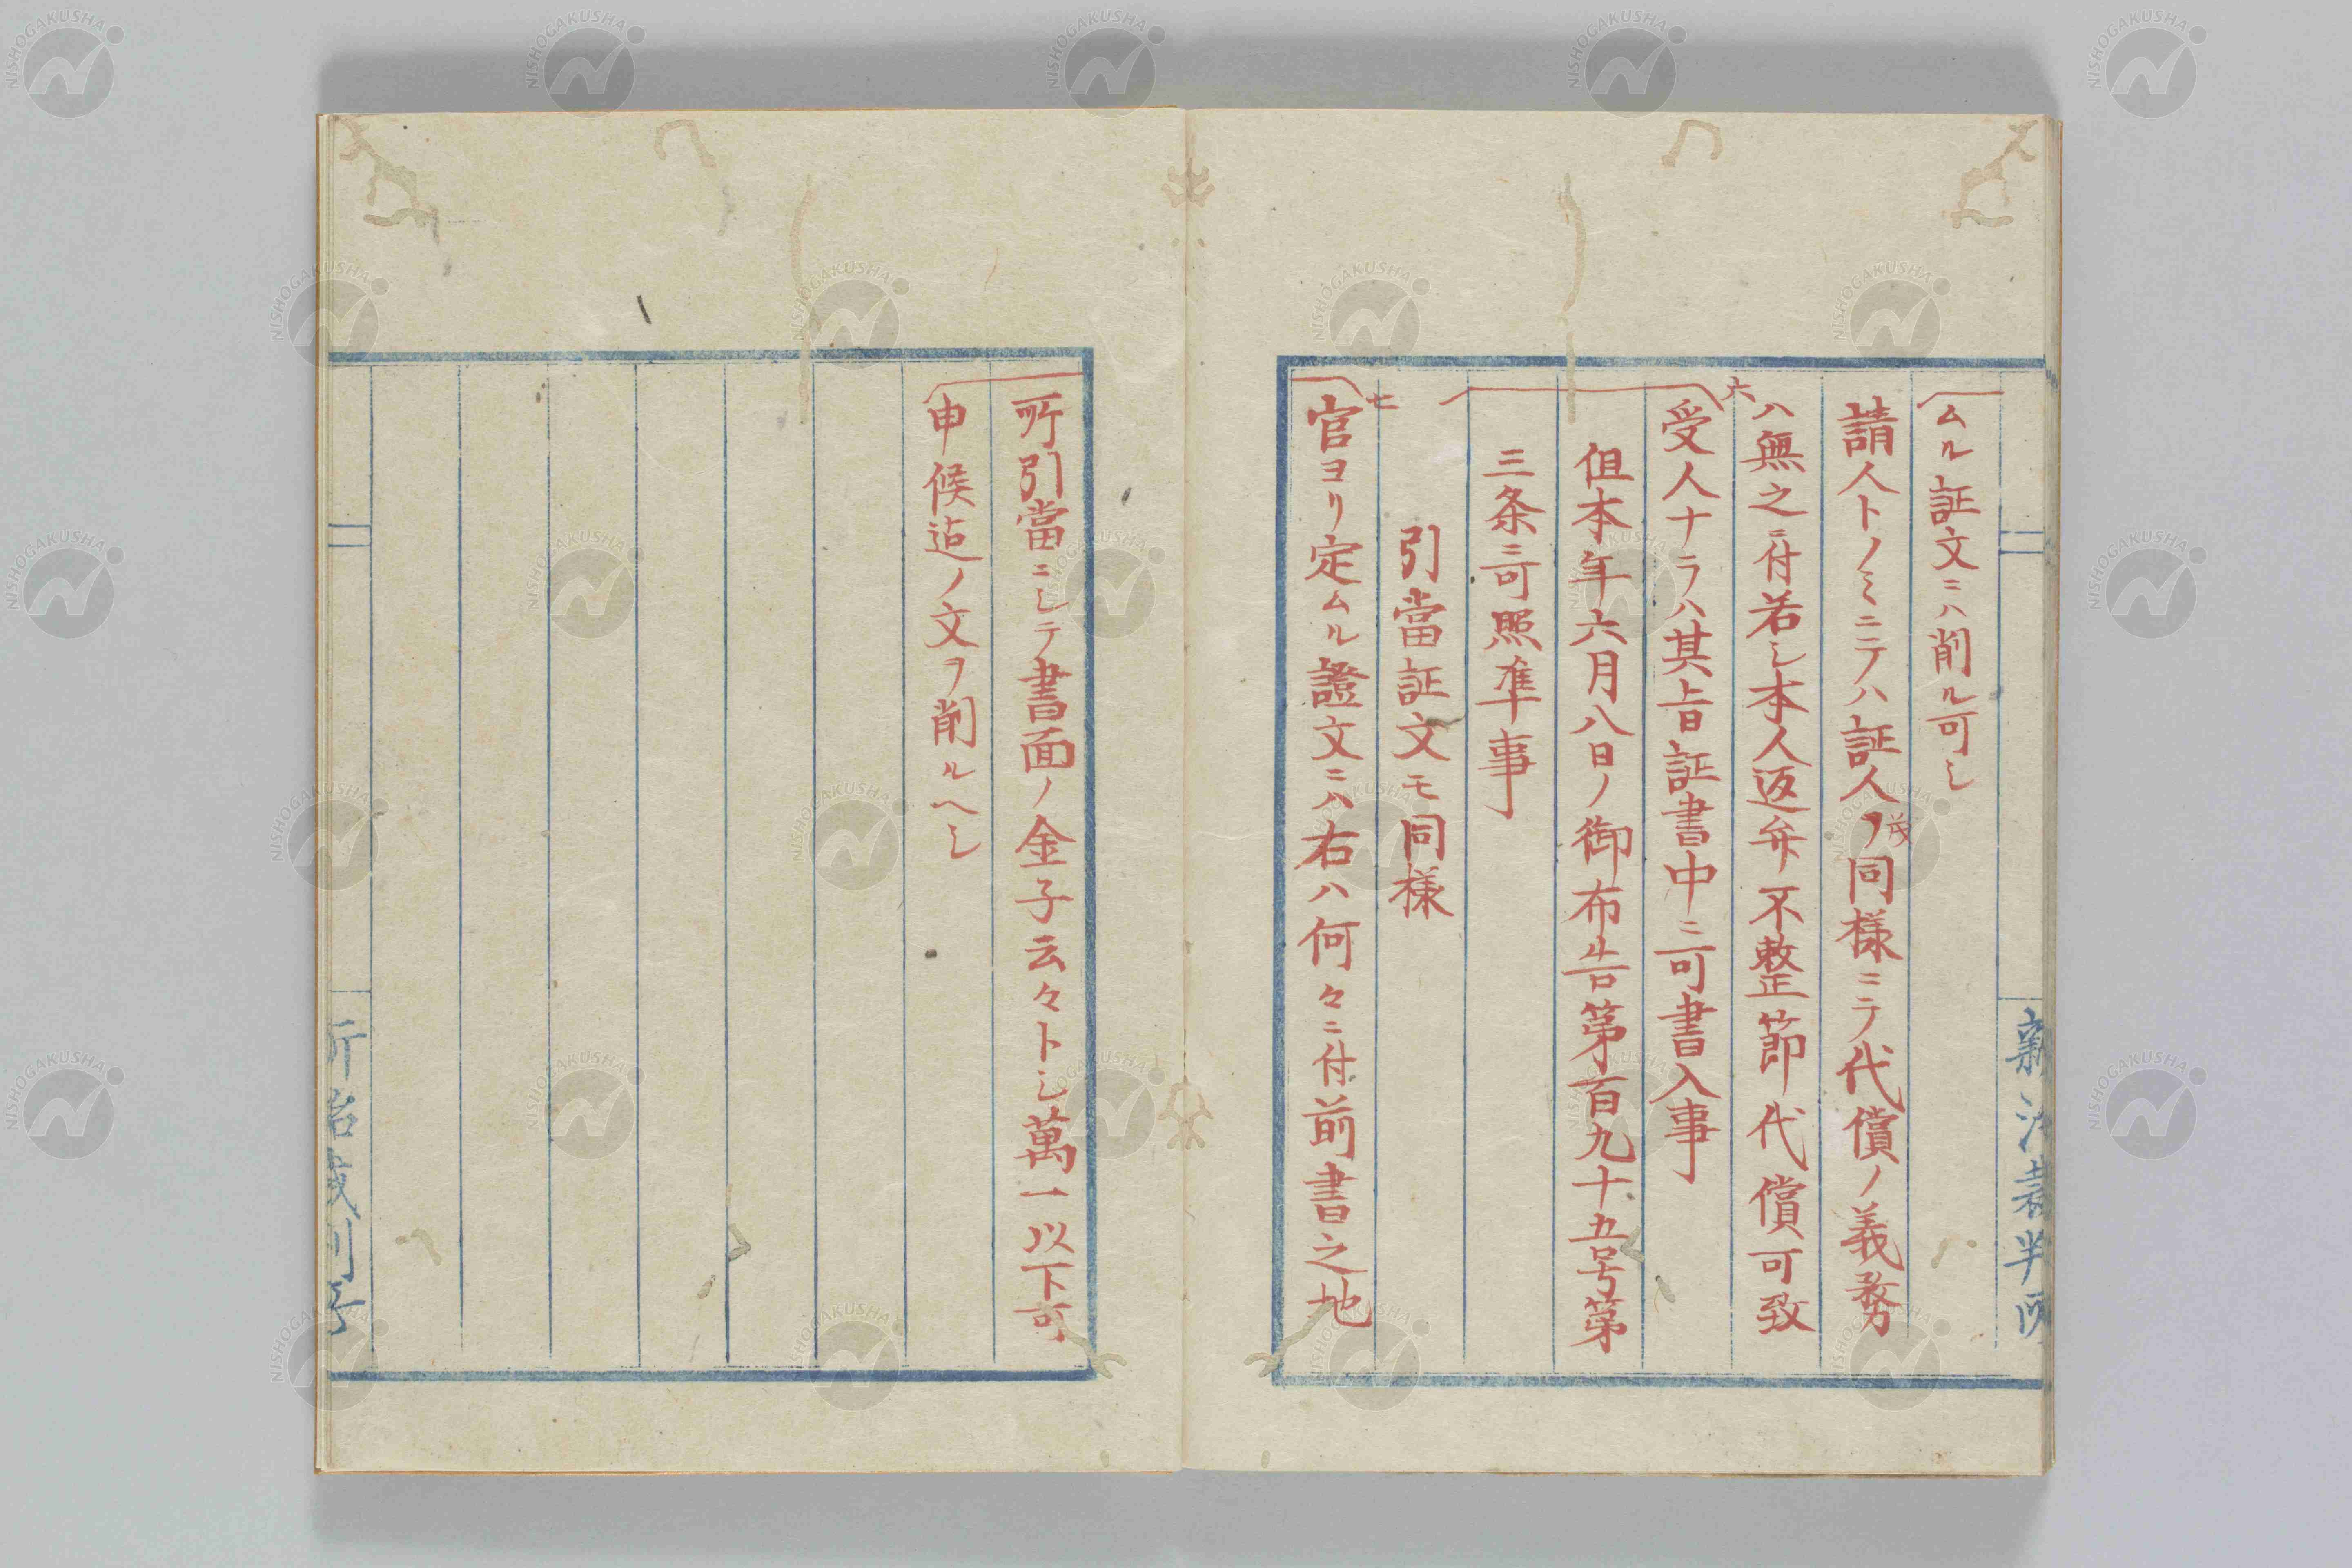 新治裁判所
ムル証文ニハ削ル可シ
請人トノミニテハ証人ヲ同様ニテ代償ノ義務
六
ハ無之ニ付若シ本人返弁不整節代償可致
受人ナラハ其旨証書中ニ可書入事
但本年六月八日ノ御布告第百九十五号第
三条ニ可照準事
引當証文モ同様
七
官ヨリ定ムル證文ニハ右ハ何々ニ付前書之地
所引當ニシテ書面ノ金子云々トシ萬一以下可
申候迄ノ文ヲ削ルヘシ
新治裁判所
NISHOGAKUSHA